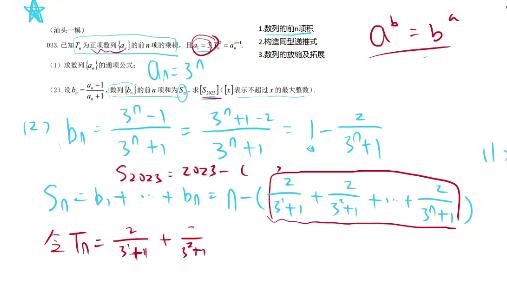 (汕头一模)
033. 已知 Tₙ 为正项数列{aₙ}的前 n 项的乘积, 且 a₁=3, Tₙ²=aₙⁿ⁻¹.
(1) 求数列{aₙ}的通项公式;
(2) 设 bₙ=(aₙ-1)/(aₙ+1), 数列{bₙ}的前 n 项和为 Sₙ, 求[S₂₀₂₃] ([x]表示不超过 x 的最大整数).
1.数列的前n项积
2.构造同型递推式
3.数列的放缩及拓展
aᵇ = bᵃ
aₙ = 3ⁿ
(2) bₙ = (3ⁿ-1)/(3ⁿ+1) = (3ⁿ+1-2)/(3ⁿ+1) = 1 - 2/(3ⁿ+1)
S₂₀₂₃ = 2023 - ( )
Sₙ = b₁ + ⋯ + bₙ = n - (2/(3¹+1) + 2/(3²+1) + ⋯ + 2/(3ⁿ+1))
令 Tₙ = 2/(3¹+1) + 2/(3²+1)